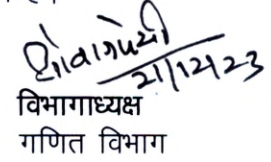 21/12/23
विभागाध्यक्ष
गणित विभाग